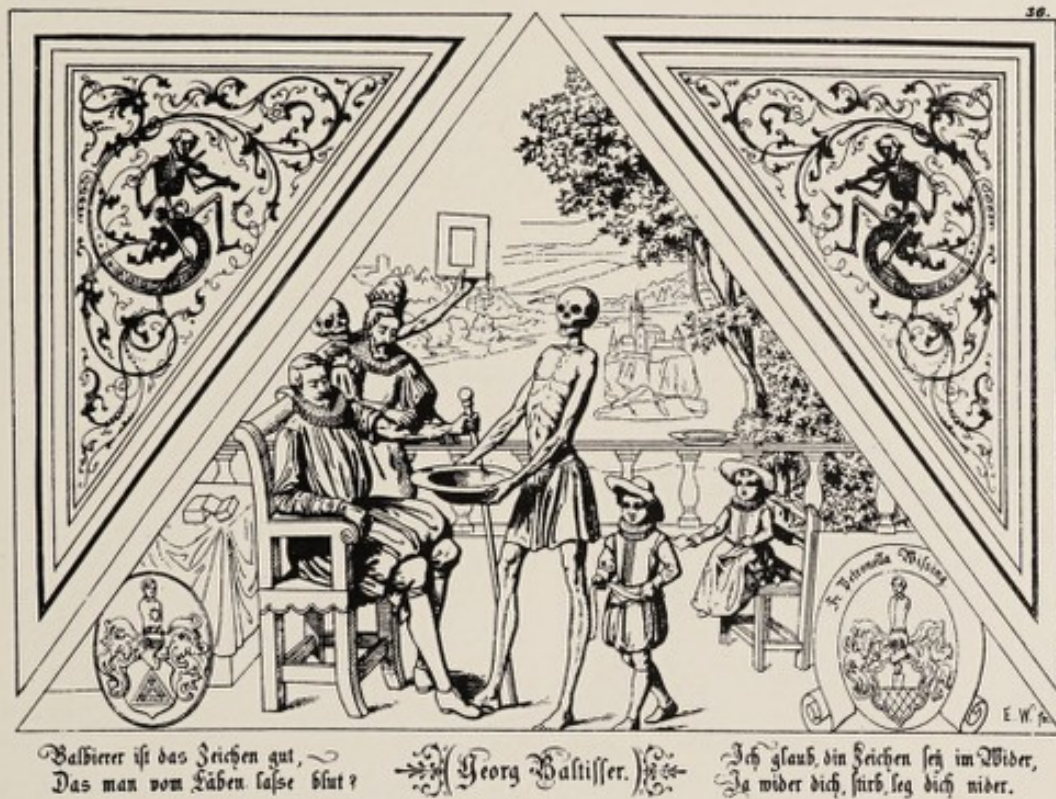 36.
Fr Petronella Wissing
E. W. fec.
Balbierer ist das Zeichen gut, ~
Das man vom Läben lasse blut?
Georg Baltisser.
Ich glaub, din Zeichen sey im Wider,
Ja wider dich, stirb, leg dich nider.